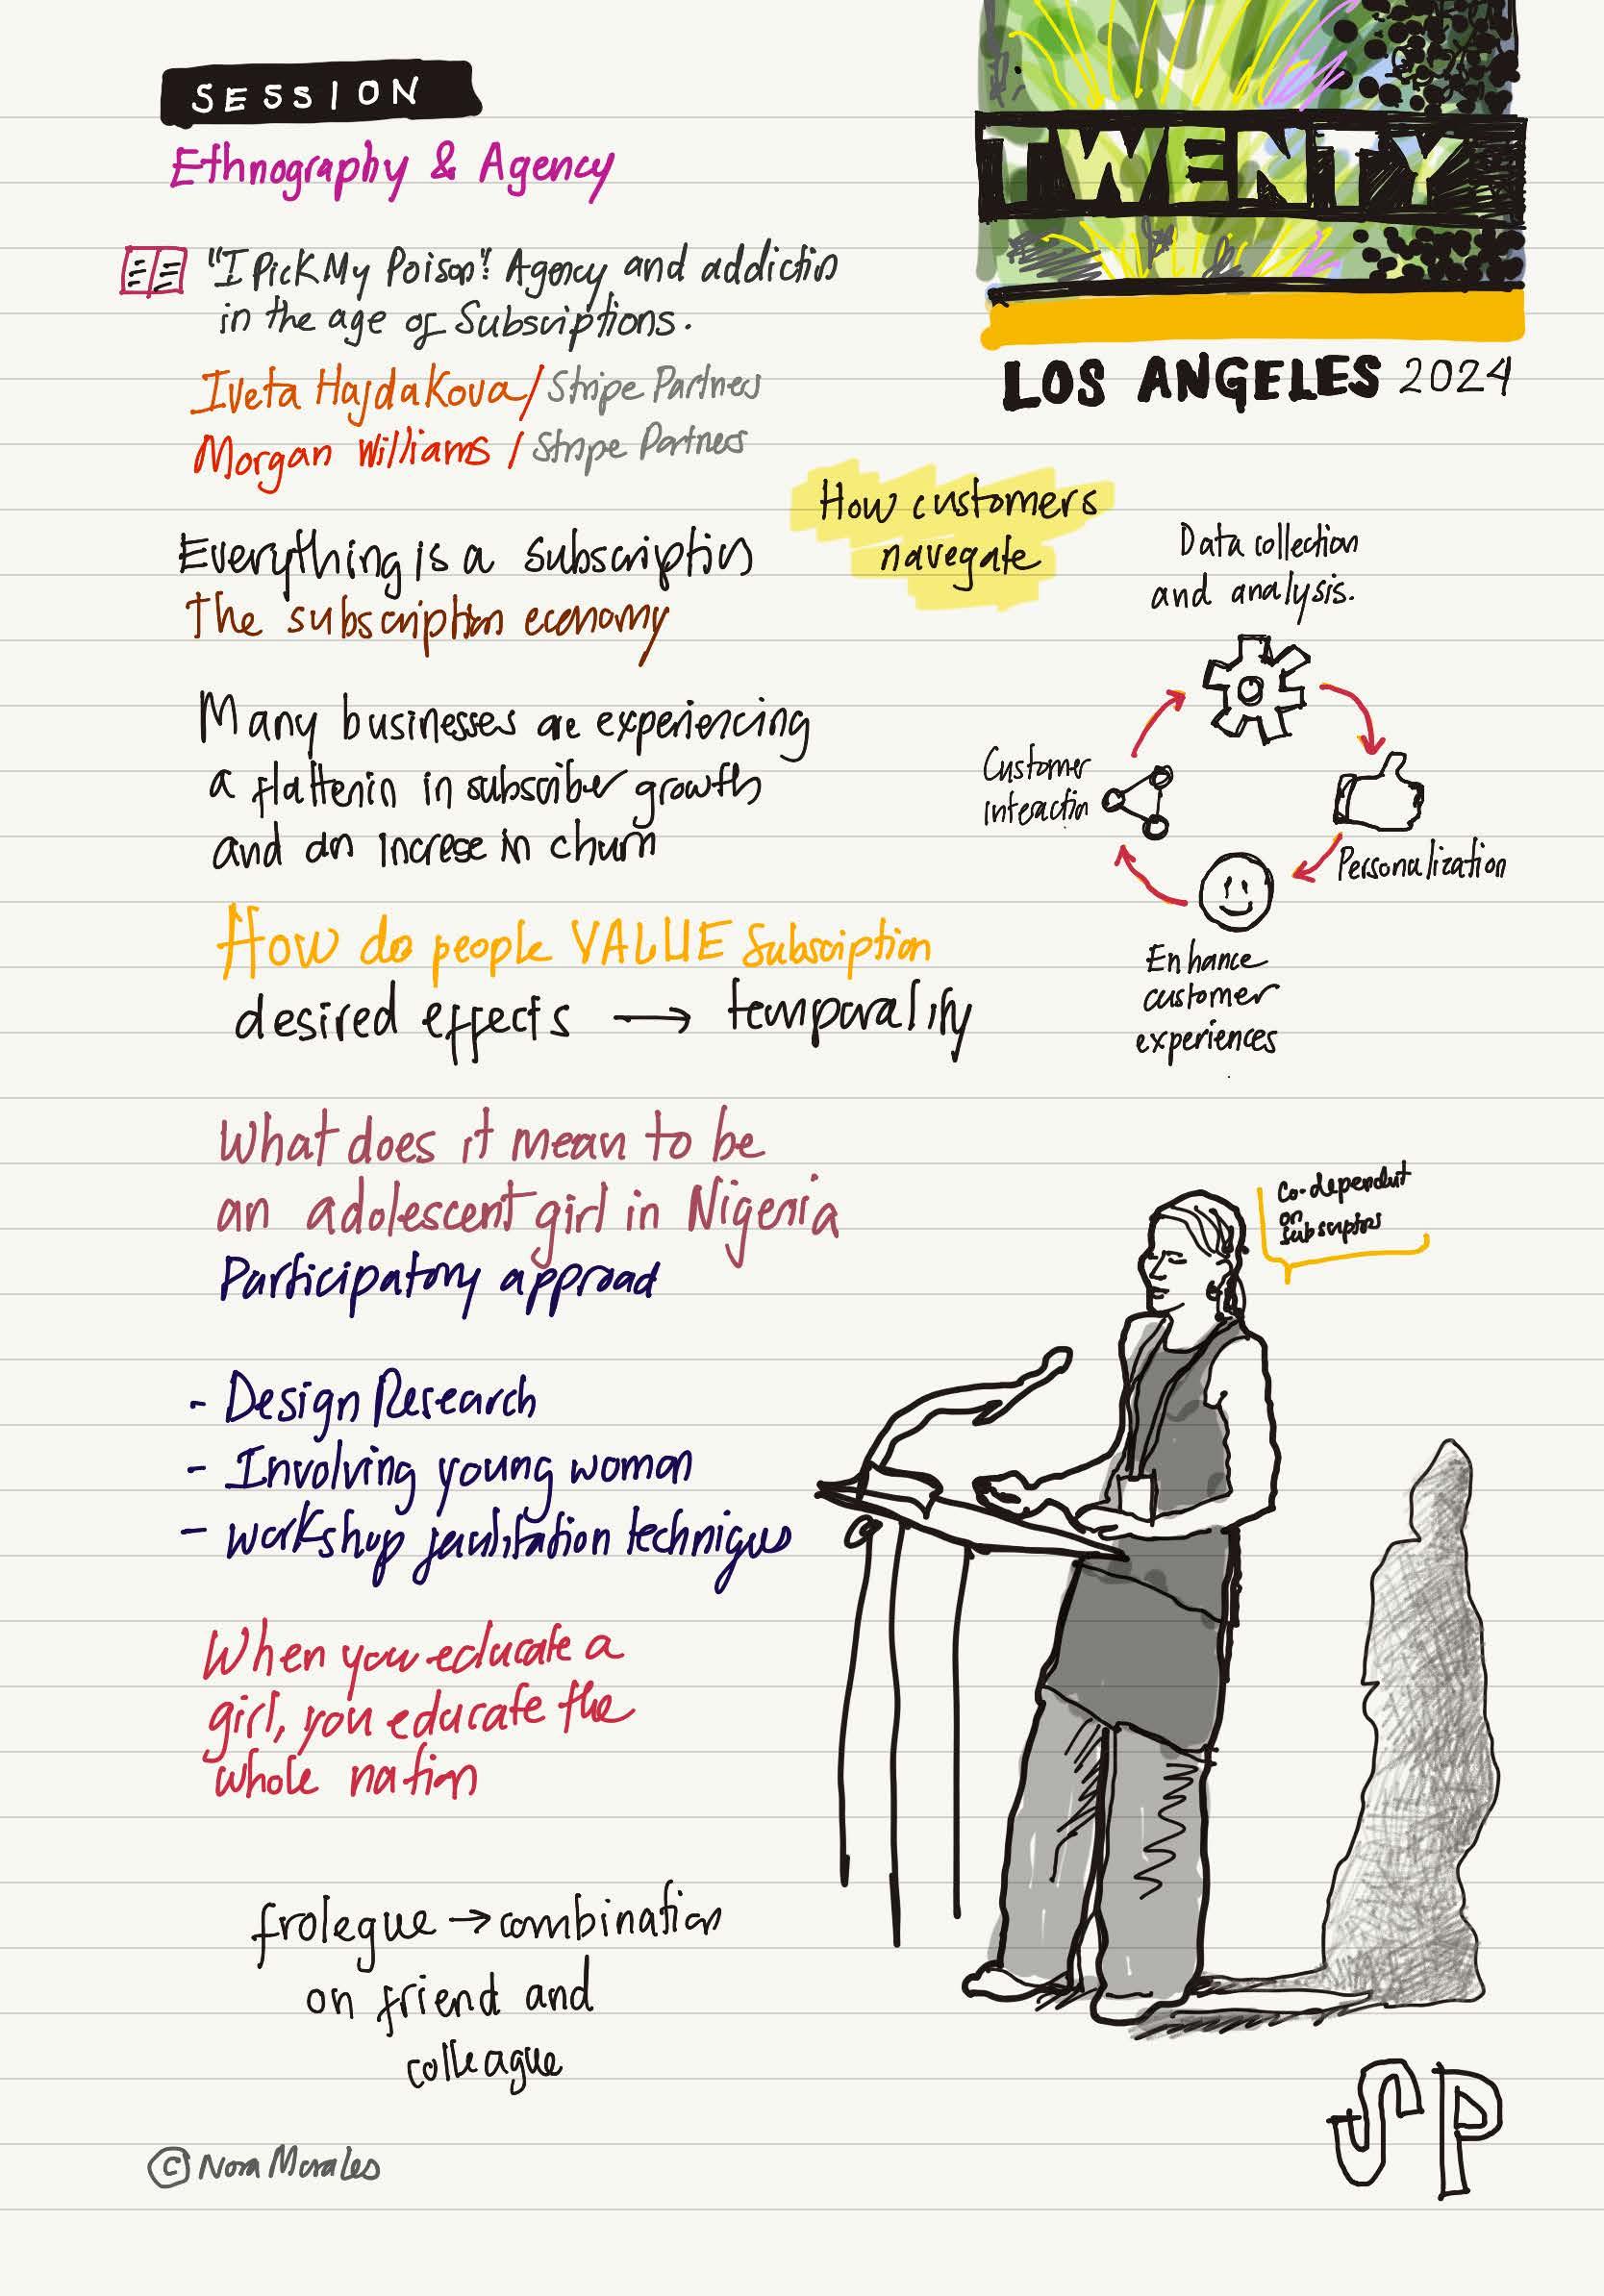 SESSION
Ethnography & Agency
"I Pick My Poison": Agency and addiction
in the age of Subscriptions.
Iveta Hajdakova / Stripe Partners
Morgan Williams / Stripe Partners
TWENTY
LOS ANGELES 2024
Everything is a subscription
The subscription economy
How customers
navegate
Many businesses are experiencing
a flattenin in subscriber growth
and an increse in churn
Data collection
and analysis.
Customer
interaction
Personalization
Enhance
customer
experiences
How do people VALUE Subscription
desired effects → temporality
What does it mean to be
an adolescent girl in Nigeria
Participatory approach
Co-dependent
on
subscriptors
- Design Research
- Involving young woman
- workshop facilitation techniques
When you educate a
girl, you educate the
whole nation
frolegue → combination
on friend and
colleague
© Nora Morales
SP